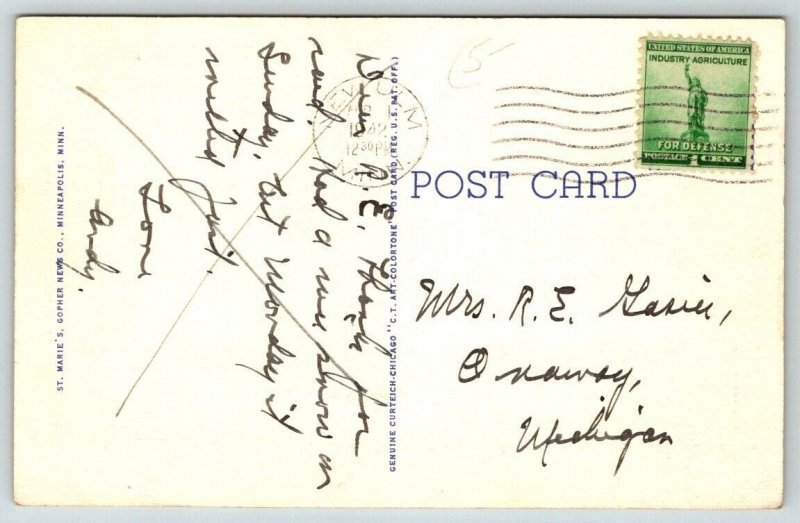 Dear R. E, Thanks for
card. Had a nice snow on
Sunday, but Monday it
melted fast.
Love
Andy.
1942
12 30 PM
UNITED STATES OF AMERICA
INDUSTRY·AGRICULTURE
FOR DEFENSE
POSTAGE 1 CENT
POST CARD
Mrs. R. E.
Onaway,
Michigan
ST. MARIE'S, GOPHER NEWS CO., MINNEAPOLIS, MINN.
GENUINE CURTEICH-CHICAGO "C.T. ART-COLORTONE" POST CARD (REG. U.S. PAT. OFF.)